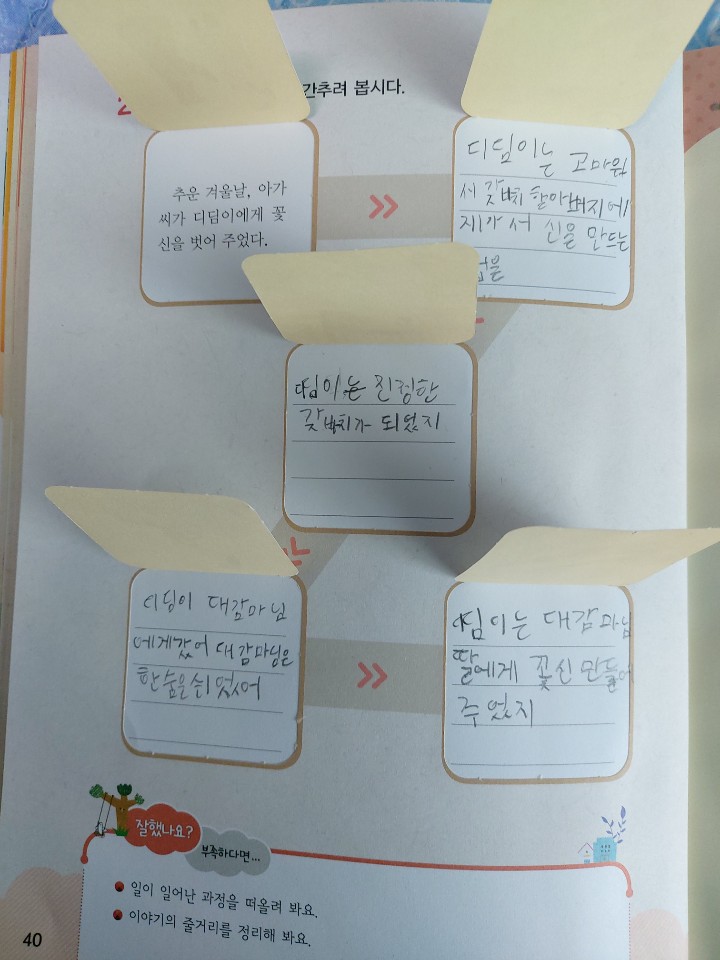 간추려 봅시다.
추운 겨울날, 아가
씨가 디딤이에게 꽃
신을 벗어 주었다.
디딤이는 고마워
서 갖바치 할아버지에
게가서 신을 만드는
딤이는 진정한
갖바치가 되었지
디딤이 대감마님
에게갔어 대감마님은
한숨을쉬었어
딤이는 대감마님
딸에게 꽃신 만들어
주었지
잘했나요?
부족하다면...
일이 일어난 과정을 떠올려 봐요.
이야기의 줄거리를 정리해 봐요.
40